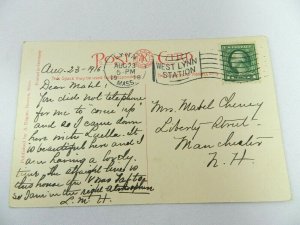 POST CARD
LYNN
AUG 23
5-PM
1916
MASS.
WEST LYNN
STATION
Aug-23-1916
Dear Mabel:
You did not telephone
for me to come up
and so I came down
here with Luella. It
is beautiful here and I
am having a lovely
time
this house are
so I am in the right atmosphere
L. M. H.
Mrs. Mabel Cheney
Liberty Street
Manchester
N. H.